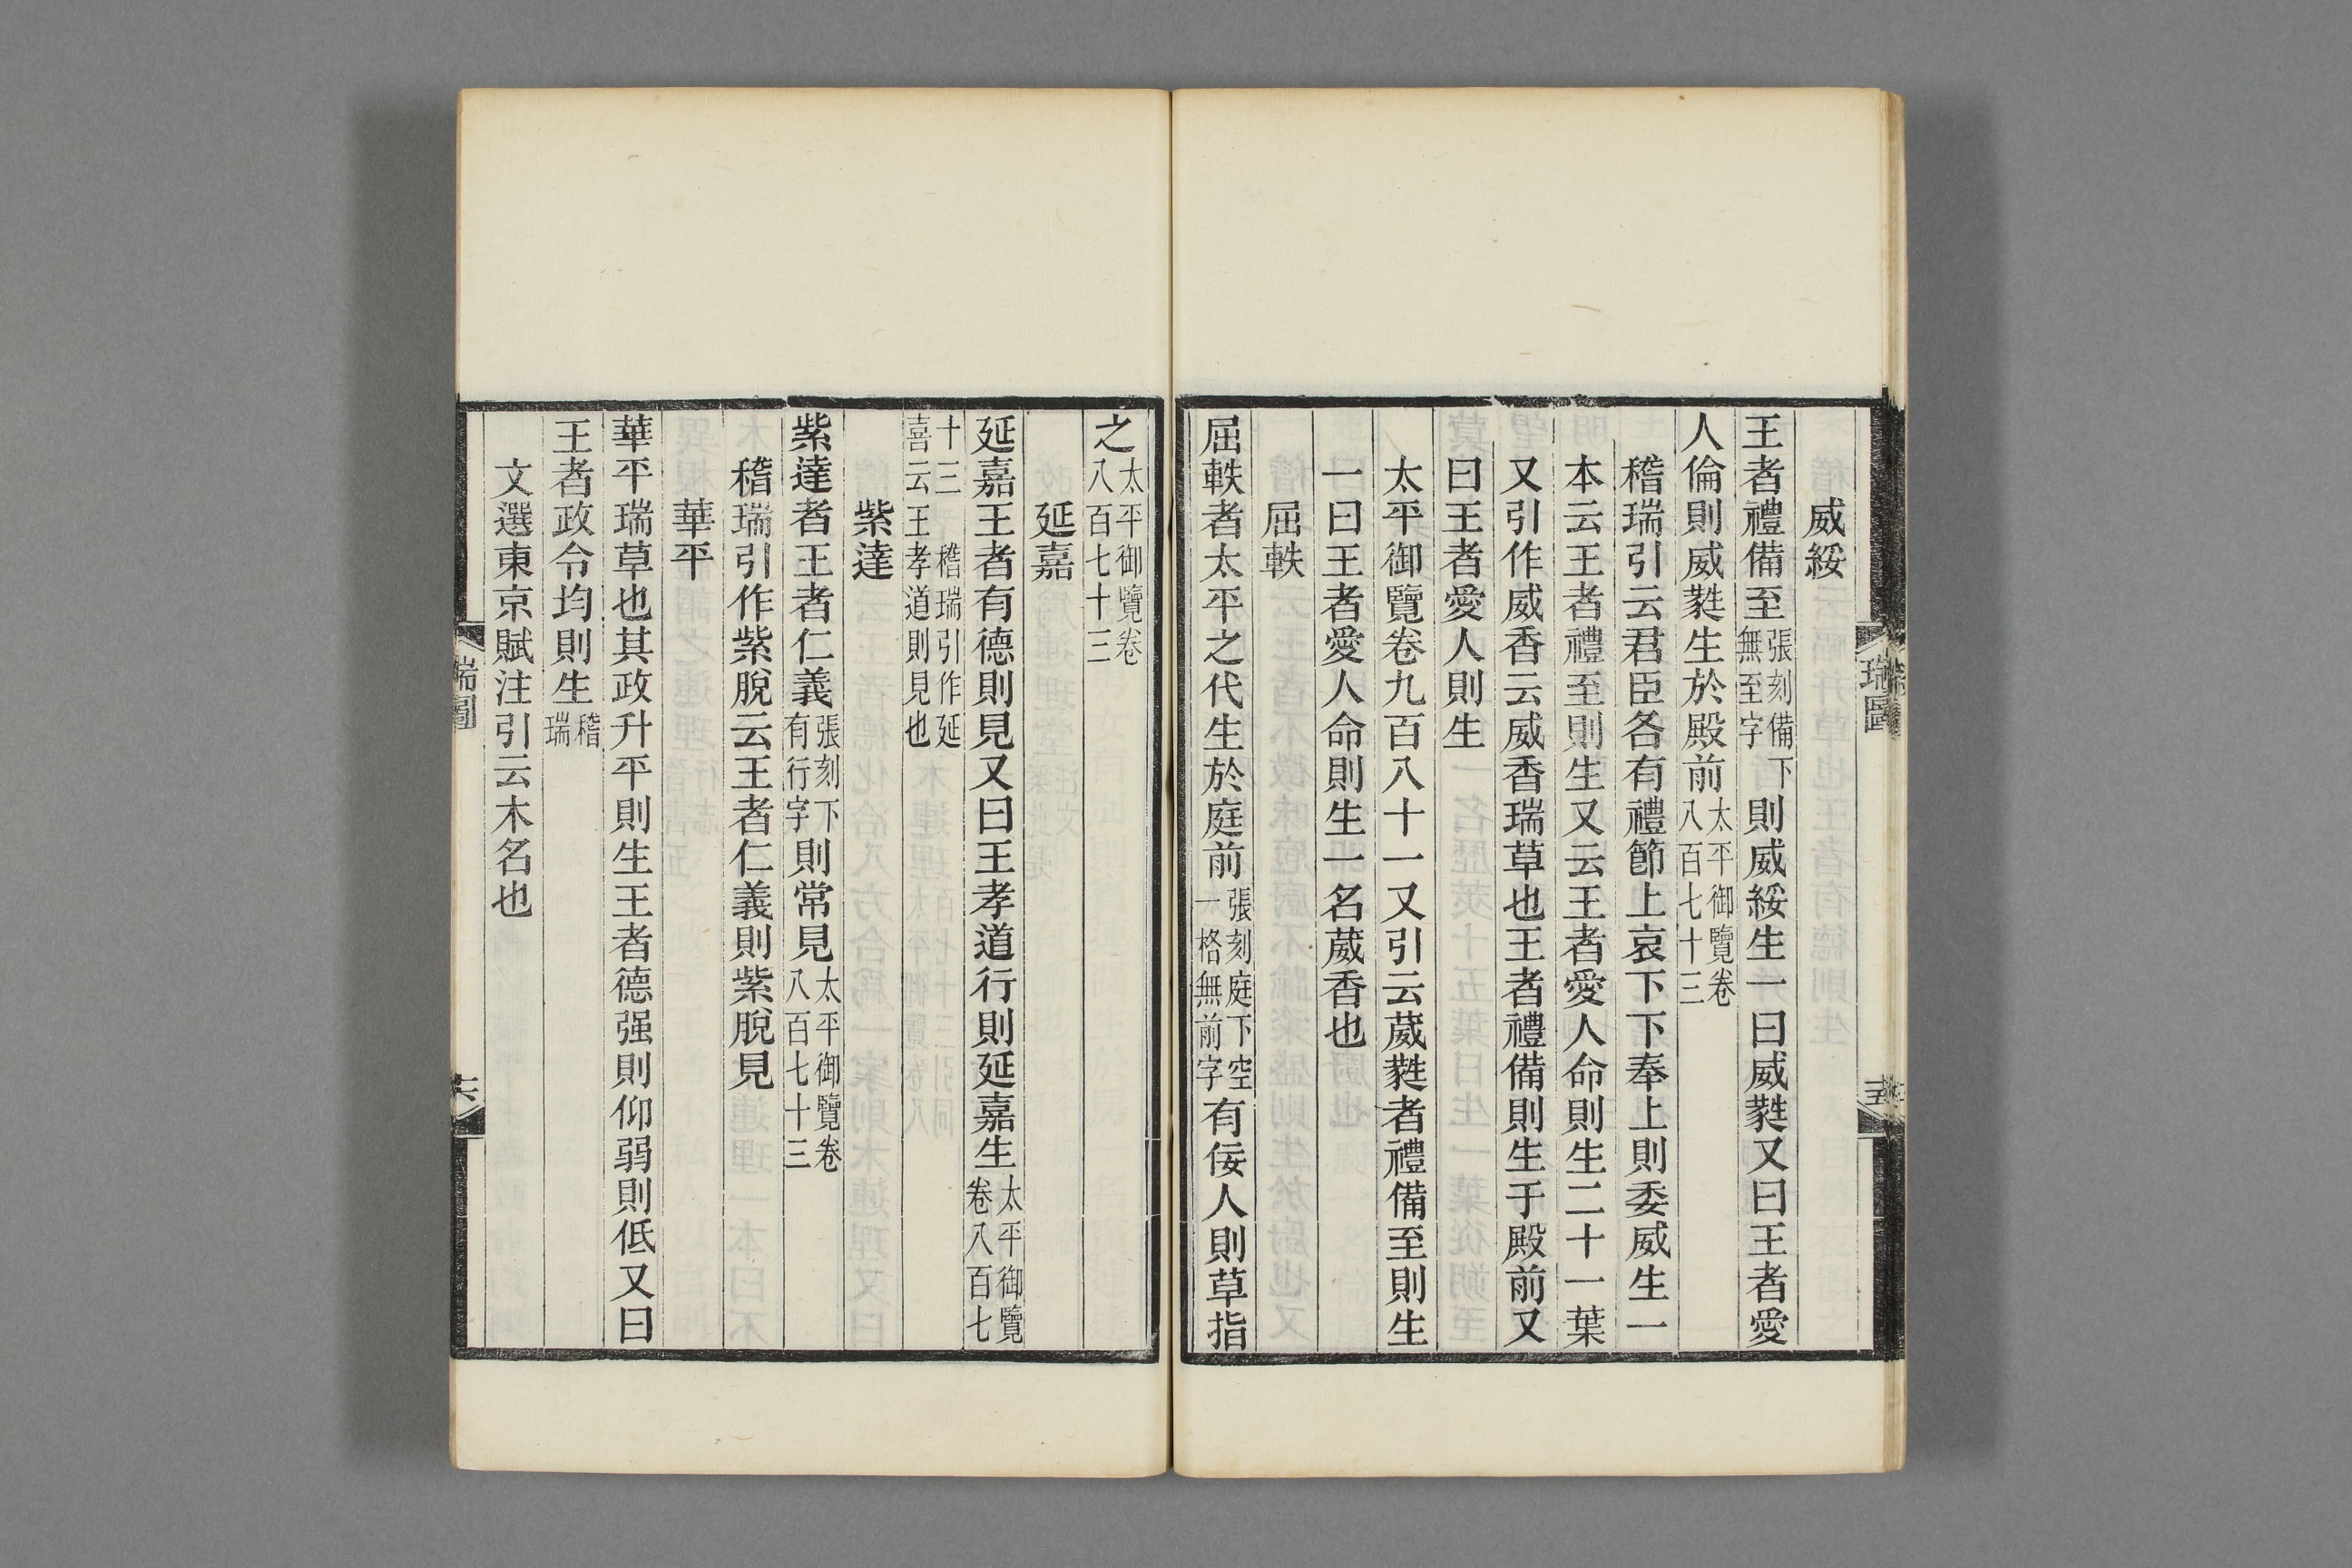 威綏
王者禮備至張刻備下無至字則威綏生一曰威蕤又曰王者愛
人倫則威蕤生於殿前太平御覽卷八百七十三
稽瑞引云君臣各有禮節上哀下下奉上則委威生一
本云王者禮至則生又云王者愛人命則生二十一葉
又引作威香云威香瑞草也王者禮備則生于殿前又
曰王者愛人則生
太平御覽卷九百八十一又引云葳蕤者禮備至則生
一曰王者愛人命則生一名葳香也
屈軼
屈軼者太平之代生於庭前張刻庭下空一格無前字有佞人則草指
之太平御覽卷八百七十三
延嘉
延嘉王者有德則見又曰王孝道行則延嘉生太平御覽卷八百七
十三 稽瑞引作延喜云王孝道則見也
紫達
紫達者王者仁義張刻下有行字則常見太平御覽卷八百七十三
稽瑞引作紫脫云王者仁義則紫脫見
華平
華平瑞草也其政升平則生王者德强則仰弱則低又曰
王者政令均則生稽瑞
文選東京賦注引云木名也